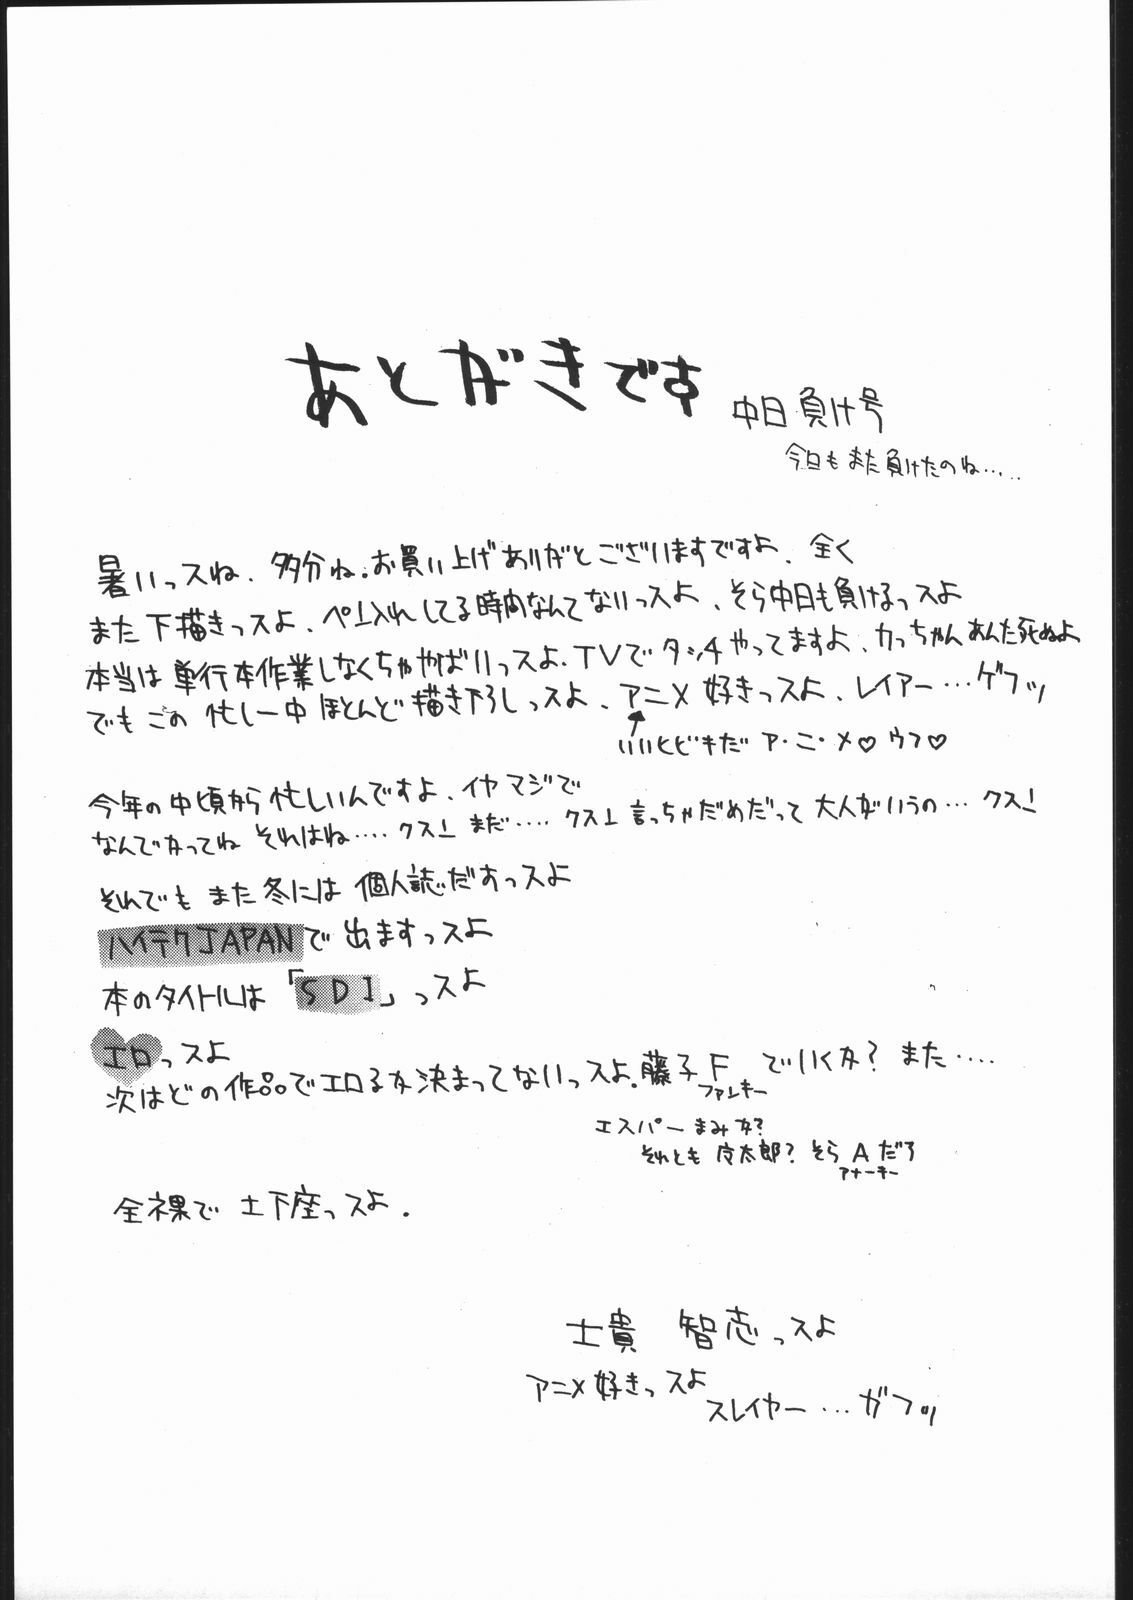 あとがきです
中日負け号
今日もまた負けたのね……
暑いっスね、多分ね。お買い上げありがとございますですよ、全く
また下描きっスよ、ペン入れしてる時間なんてないっスよ、そら中日も負けるっスよ
本当は単行本作業しなくちゃやばいっスよ。TVでタッチやってますよ、カっちゃんあんた死ぬよ
でもこの忙し一中ほとんど描き下ろしっスよ、アニメ好きっスよ、レイアー…ゲフッ
いいヒビキだ ア・ニ・メ♡ ウフ♡
今年の中頃から忙しいんですよ、イヤマジで
なんでかってね それはね…. クスン まだ…. クスン 言っちゃだめだって 大人がいうの… クスン
それでも また冬には 個人誌だすっスよ
ハイテクJAPANで 出ますっスよ
本のタイトルは「SDI」っスよ
エロっスよ
次はどの作品でエロるか決まってないっスよ。藤子Fでいくか? また….
ファンキー
エスパーまみか?
それとも 床太郎? そら Aだろ
アナーキー
全裸で 土下座っスよ.
士貴 智志っスよ
アニメ好きっスよ
スレイヤー…ガフッ